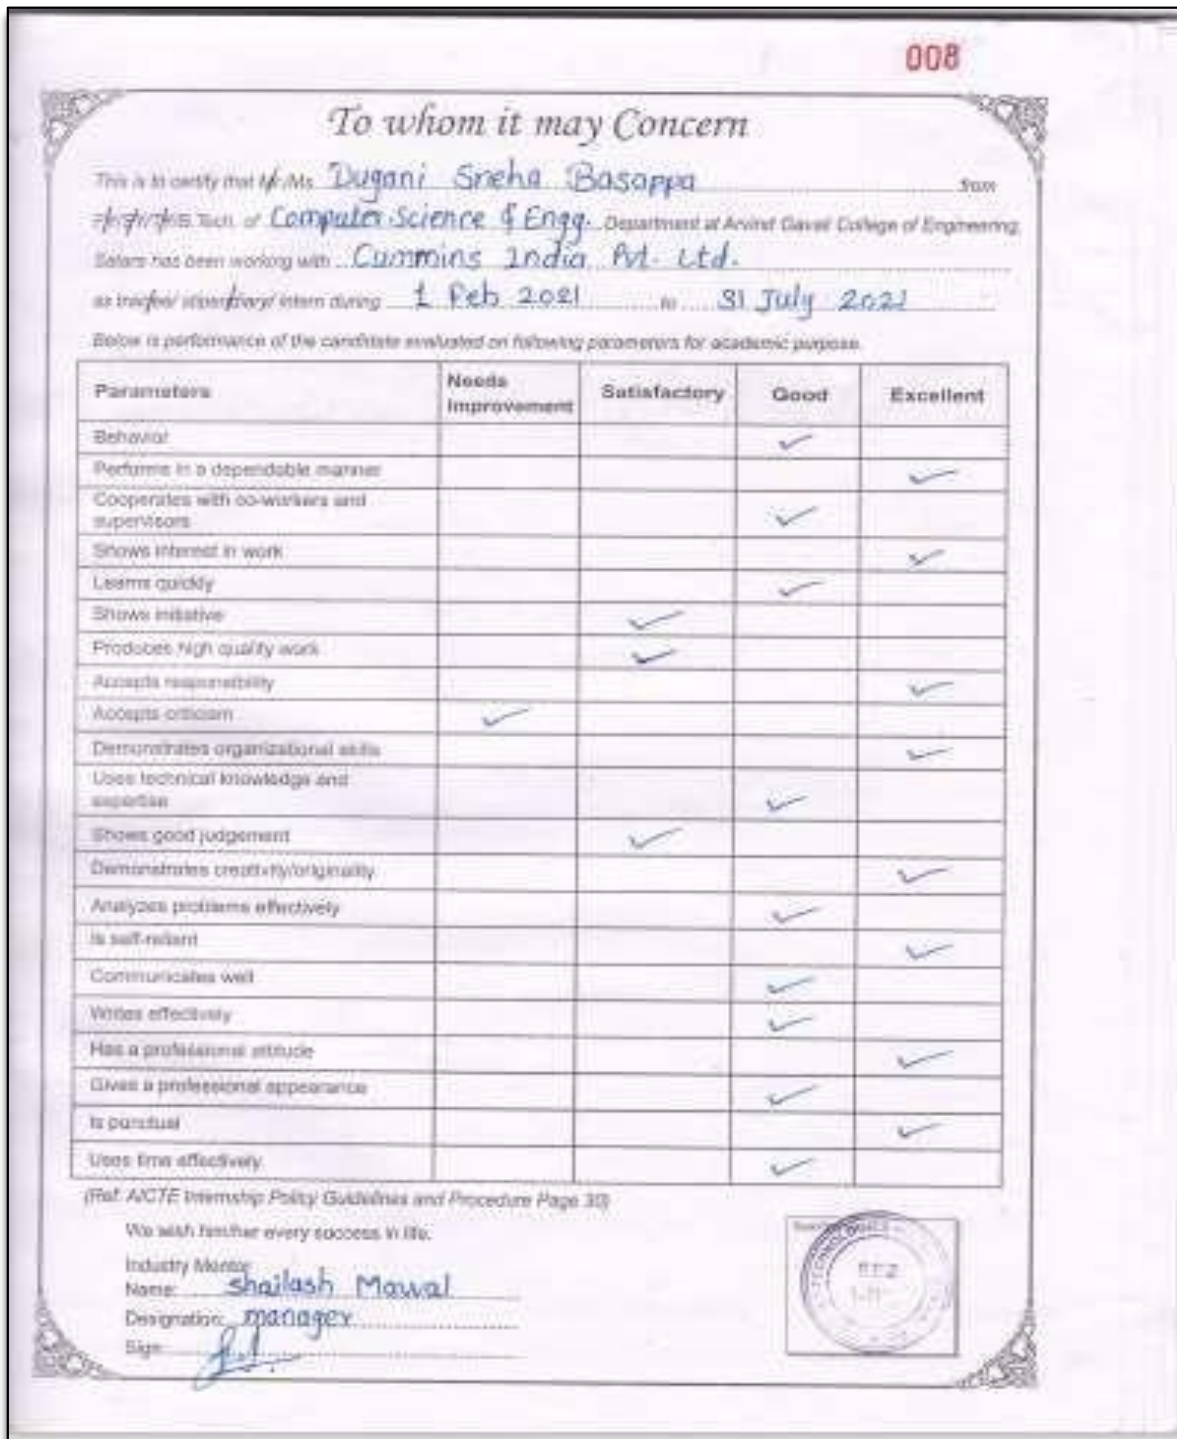 008
To whom it may Concern
This is to certify that Mr/Ms. Dugani Sneha Basappa from
B.Tech. of Computer Science & Engg. Department at Arvind Gavali College of Engineering,
Satara has been working with Cummins India Pvt. Ltd.
as trainee/ stipendiary/ intern during 1 Feb 2021 to 31 July 2021
Below is performance of the candidate evaluated on following parameters for academic purpose.
Parameters Needs Improvement Satisfactory Good Excellent
Behavior ✓
Performs in a dependable manner ✓
Cooperates with co-workers and
supervisors ✓
Shows interest in work ✓
Learns quickly ✓
Shows initiative ✓
Produces high quality work ✓
Accepts responsibility ✓
Accepts criticism ✓
Demonstrates organizational skills ✓
Uses technical knowledge and
expertise ✓
Shows good judgement ✓
Demonstrates creativity/originality ✓
Analyzes problems effectively ✓
Is self-reliant ✓
Communicates well ✓
Writes effectively ✓
Has a professional attitude ✓
Gives a professional appearance ✓
Is punctual ✓
Uses time effectively ✓
(Ref: AICTE Internship Policy Guidelines and Procedure Page 30)
We wish him/her every success in life.
Industry Mentor
Name: Shailash Mawal
Designation: manager
Sign
TECHNOLOGIES